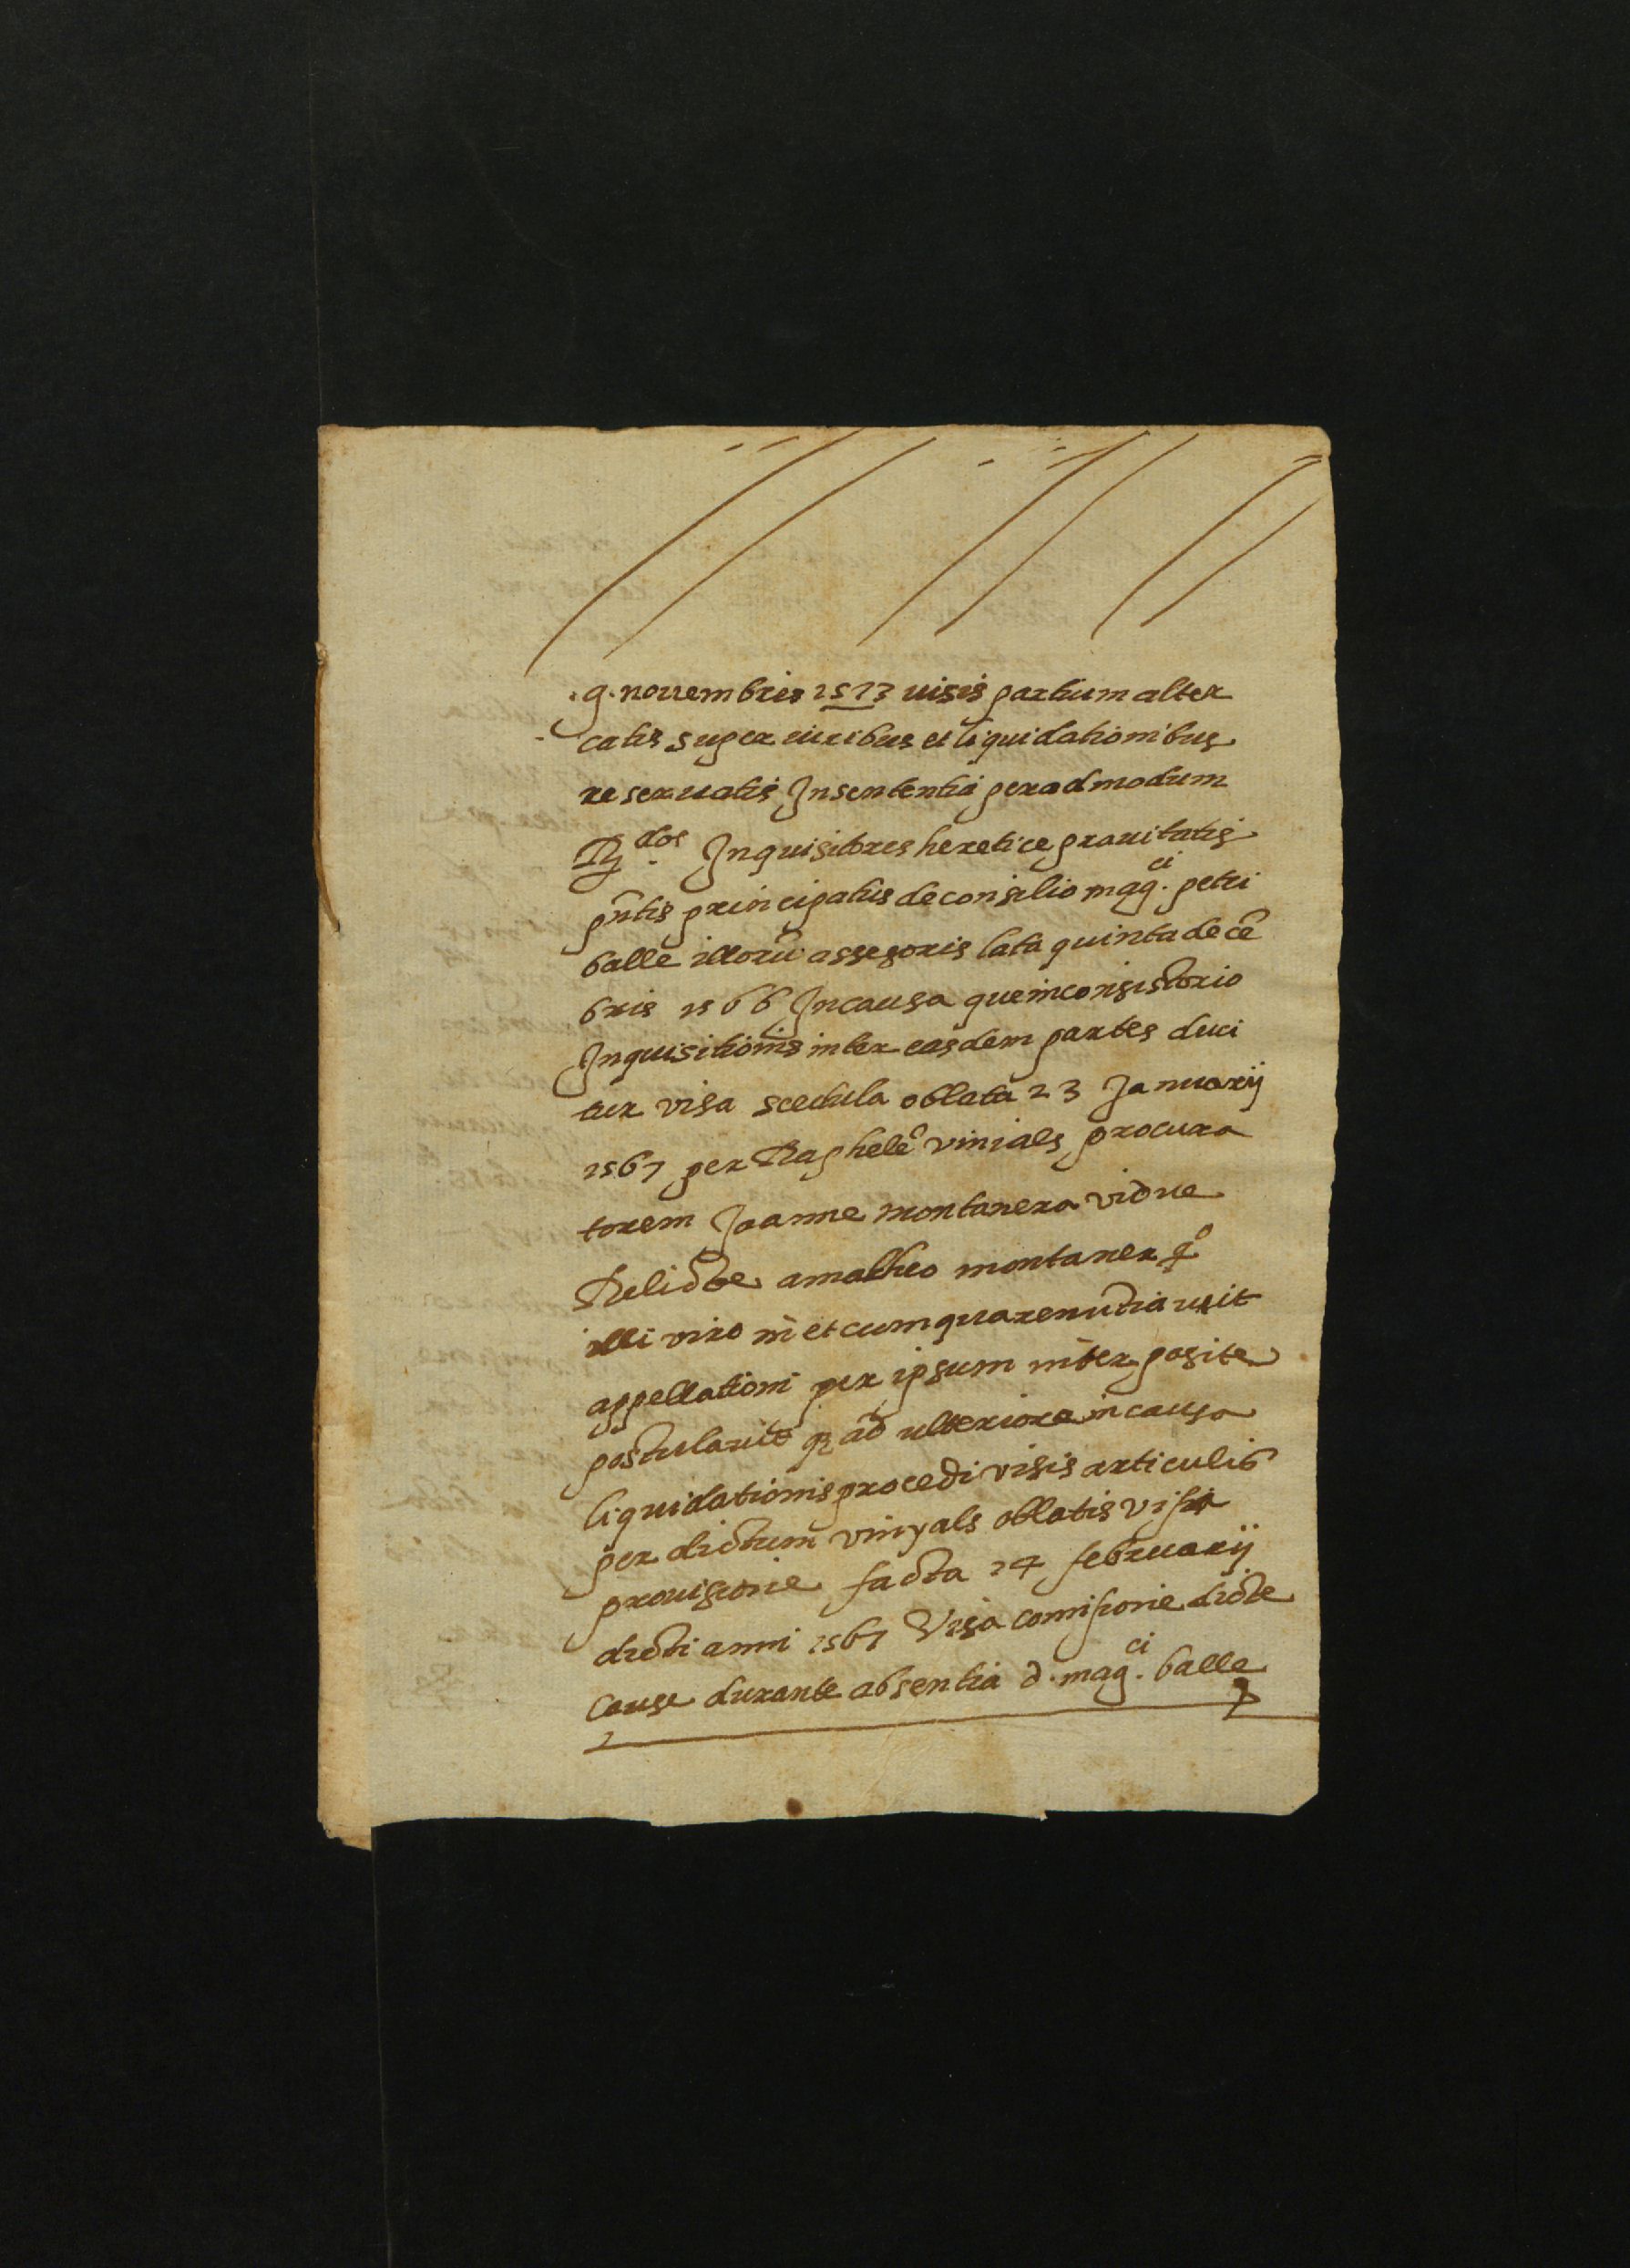 .9. nouembris 1573 uisis partium alter
catis super iuribus et liquidationibus
reseruatis In sententia per admodum
R.dos Inquisitores heretice prauitatis
pñtis principatus de consilio mag.ci petri
balle illorũ assessoris lata quinta decẽ
bris 1566 In causa que in consistorio
Inquisitionis inter easdem partes duci
tur visa scedula oblata 23 Januarij
1567 per Raphelẽ vinials procura
torem Joanne montanera vidue
Relicte a matheo montaner qº
illi viro in et cum qua renuntiauit
appellationi per ipsum inter posite
postulauit q ad ulteriora in causa
liquidationis procedi visis articulis
per dictum vinyals oblatis visa
prouisione facta 24 februarij
dicti anni 1567 Visa comisione dicte
Cause durante absentia d. mag.ci balle